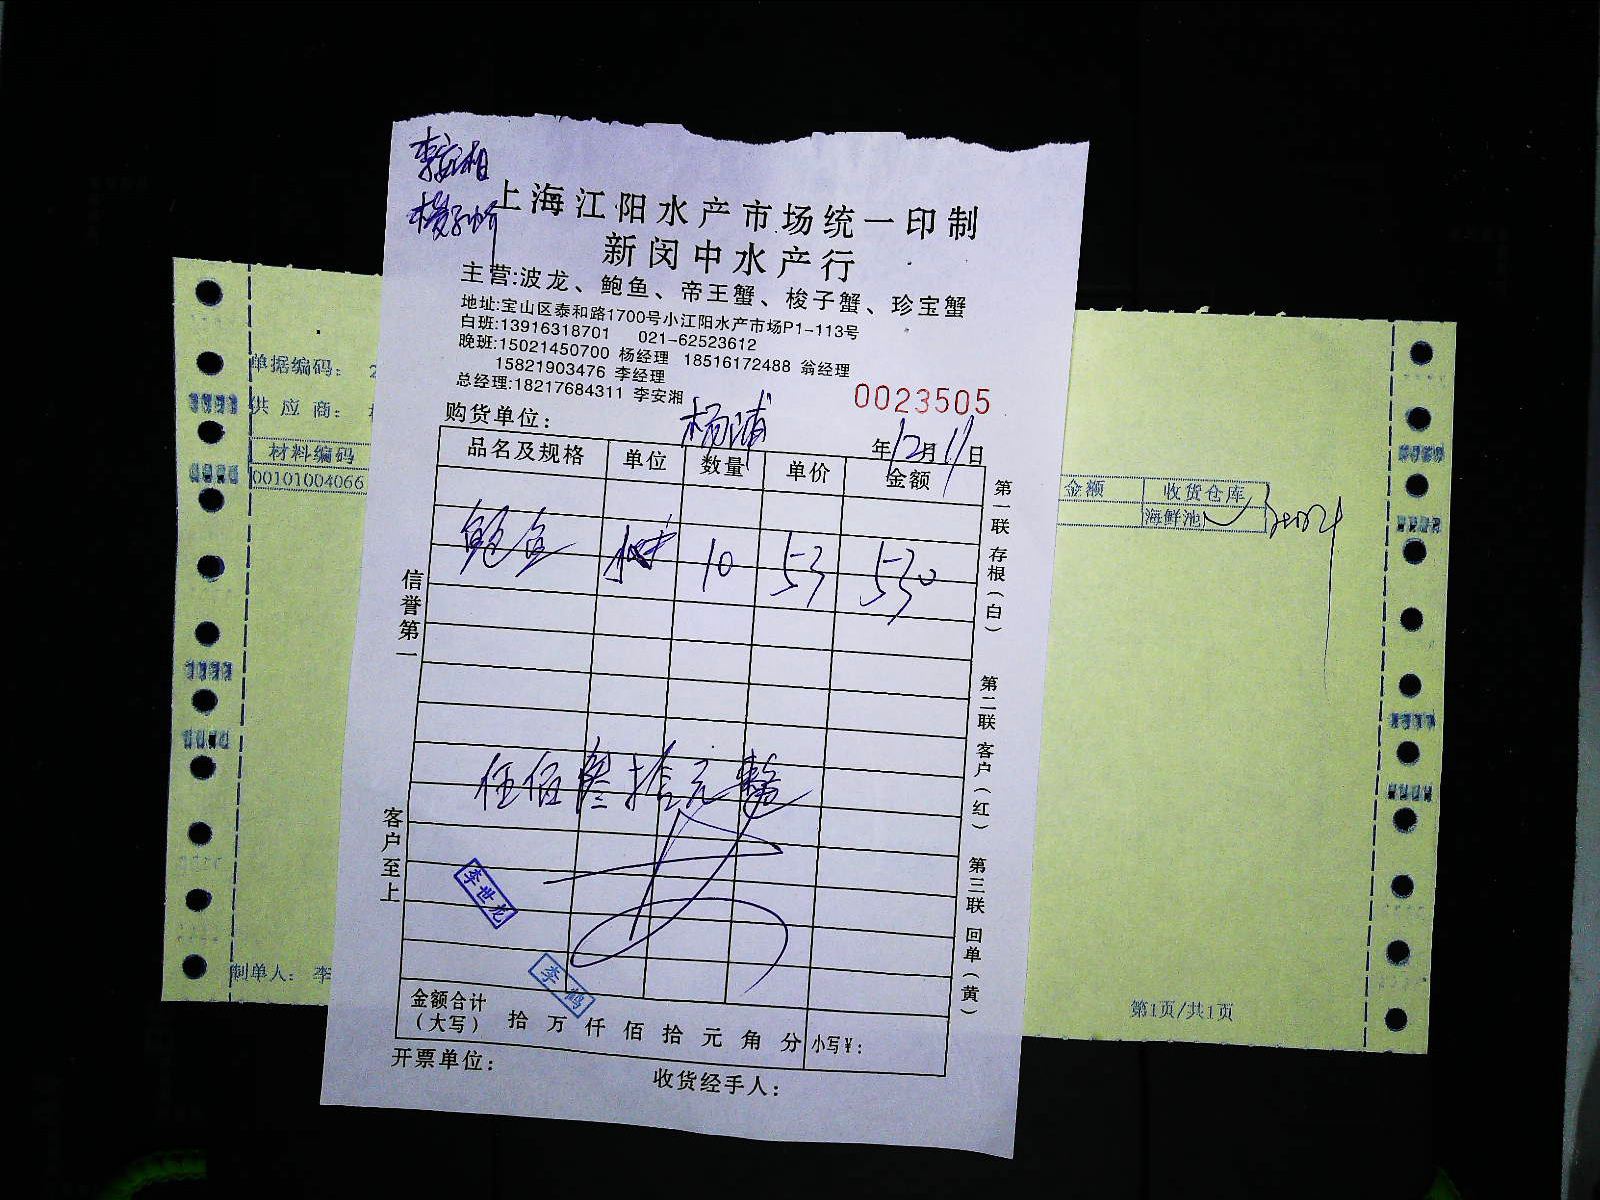 李安湘
上海江阳水产市场统一印制
新闵中水产行
主营:波龙、鲍鱼、帝王蟹、梭子蟹、珍宝蟹
地址:宝山区泰和路1700号小江阳水产市场P1-113号
白班:13916318701 021-62523612
晚班:15021450700 杨经理 18516172488 翁经理
15821903476 李经理
总经理:18217684311 李安湘
0023505
购货单位: 杨浦 年12月11日
品名及规格 单位 数量 单价 金额
鲍鱼 10 53 530
伍佰叁拾元整
李世龙
李鹤
金额合计
(大写) 拾 万 仟 佰 拾 元 角 分 小写¥:
开票单位: 收货经手人:
信誉第一
客户至上
第一联 存根(白)
第二联 客户(红)
第三联 回单(黄)
单据编码: 2
供应商:
材料编码
00101004066
制单人: 李
金额 收货仓库
海鲜池
第1页/共1页